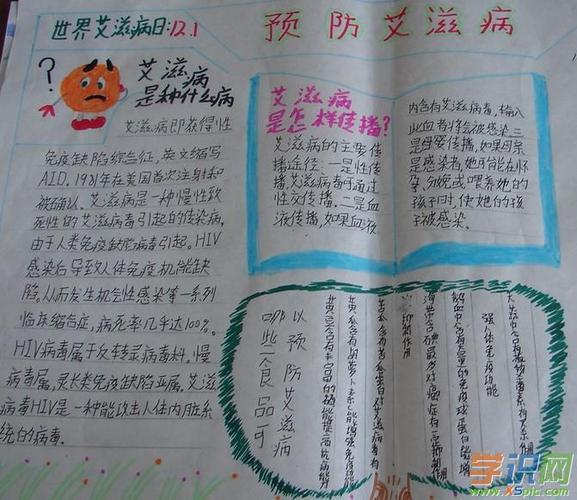 世界艾滋病日:12.1
预防艾滋病
?
艾滋病
是种什么病
艾滋病即获得性
免疫缺陷综合征,英文缩写
AID。1981年在美国首次注射和
被确认。艾滋病是一种慢性致
死性的艾滋病毒引起的传染病,
由于人类免疫缺陷病毒引起。HIV
感染后导致人体免疫机能缺
陷。从而发生机会性感染等一系列
临床综合症,病死率几乎达100%。
HIV病毒属于反转录病毒科。慢
病毒属。灵长类免疫缺陷亚属。艾滋
病毒HIV是一种能攻击人体内脏系
统的病毒。
艾滋病
是怎样传播?
艾滋病的主要传
播途径:一是性传
播,艾滋病毒可通过
性交传播。二是血
液传播,如果血液
内含有艾滋病毒,输入
此血者将会被感染三
是母婴传播,如果母亲
是感染者,她可能在怀
孕、分娩或喂养她的
孩子时,使她的孩
子被感染。
大蒜中含
强人体免疫功能
含有大量的免疫球蛋白能增
海带含碘最多对癌症有
抑制作用
苦瓜含有
黄瓜含有
以预防艾滋病
哪些食品可
学识网
www.xSpic.com